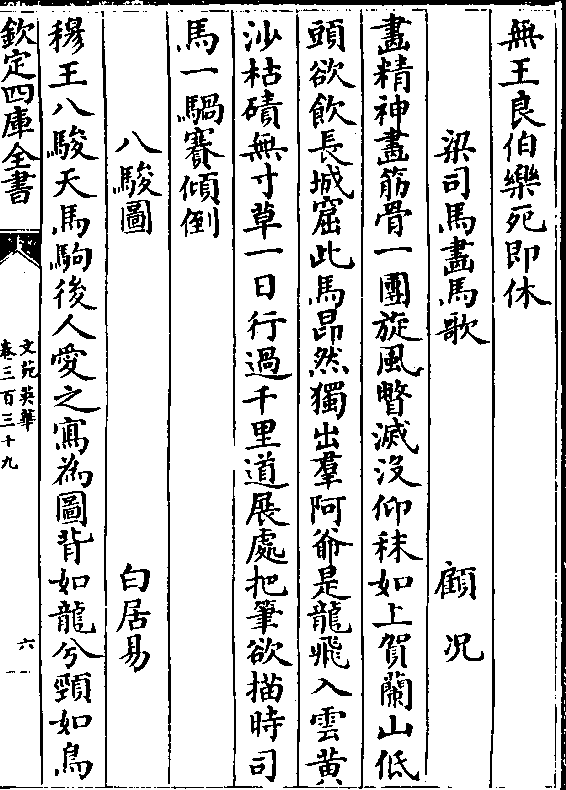 無王良伯樂死即休
梁司馬畫馬歌　顧况
畫精神畫筋骨一團旋風瞥滅没仰秣如上賀蘭山低
頭欲飲長城窟此馬昂然獨出羣阿爺是龍飛入雲黄
沙枯磧無寸草一日行過千里道展處把筆欲描時司
馬一騧賽傾倒
八駿圖　白居易
穆王八駿天馬駒後人愛之寫為圖背如龍兮頸如鳥
欽定四庫全書
文苑英華
卷三百三十九
六